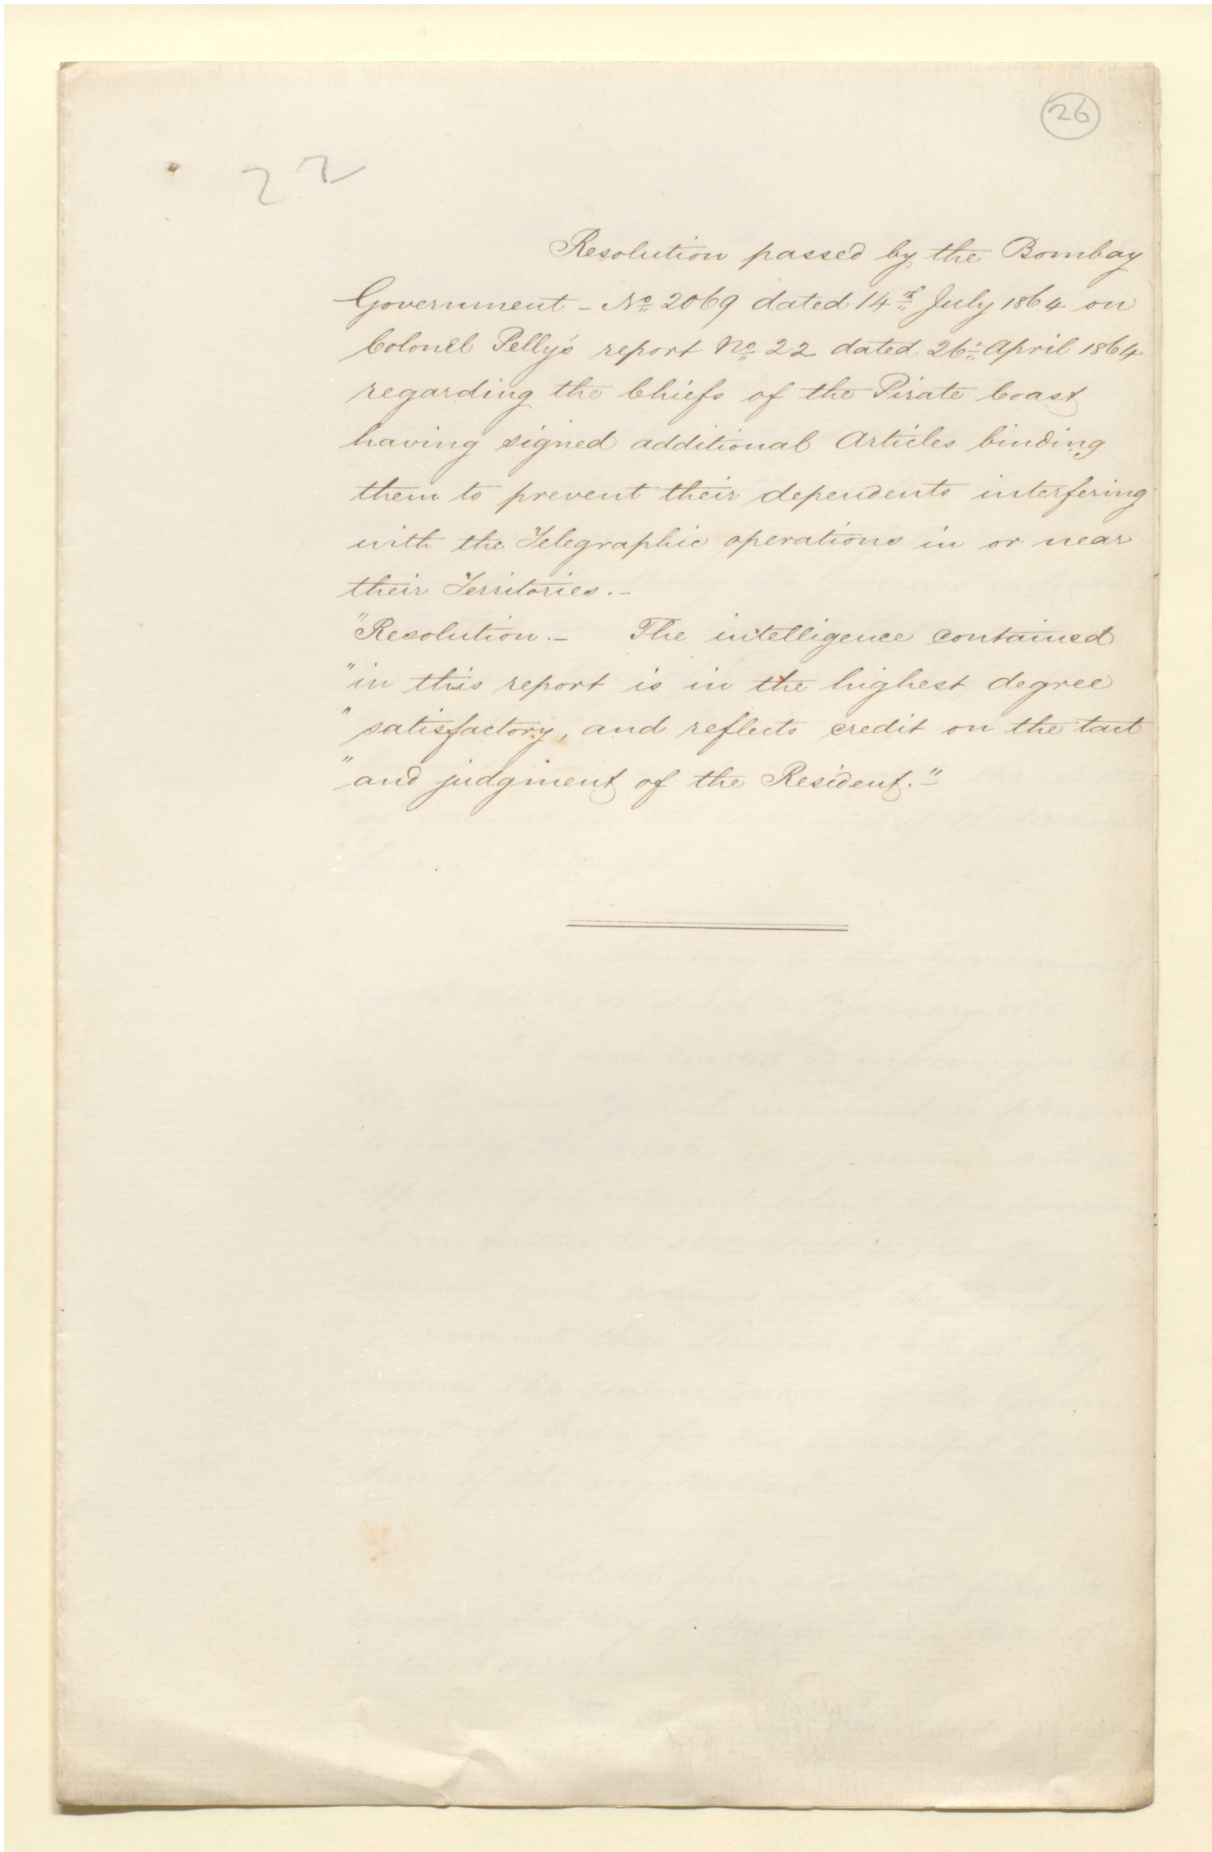 26
22
Resolution passed by the Bombay
Government - No 2069 dated 14th July 1864 on
Colonel Pelly's report No 22 dated 26th April 1864
regarding the Chiefs of the Pirate Coast
having signed additional Articles binding
them to prevent their dependents interfering
with the Telegraphic operations in or near
their Territories.-
"Resolution.- The intelligence contained
"in this report is in the highest degree
"satisfactory, and reflects credit on the tact
"and judgment of the Resident."